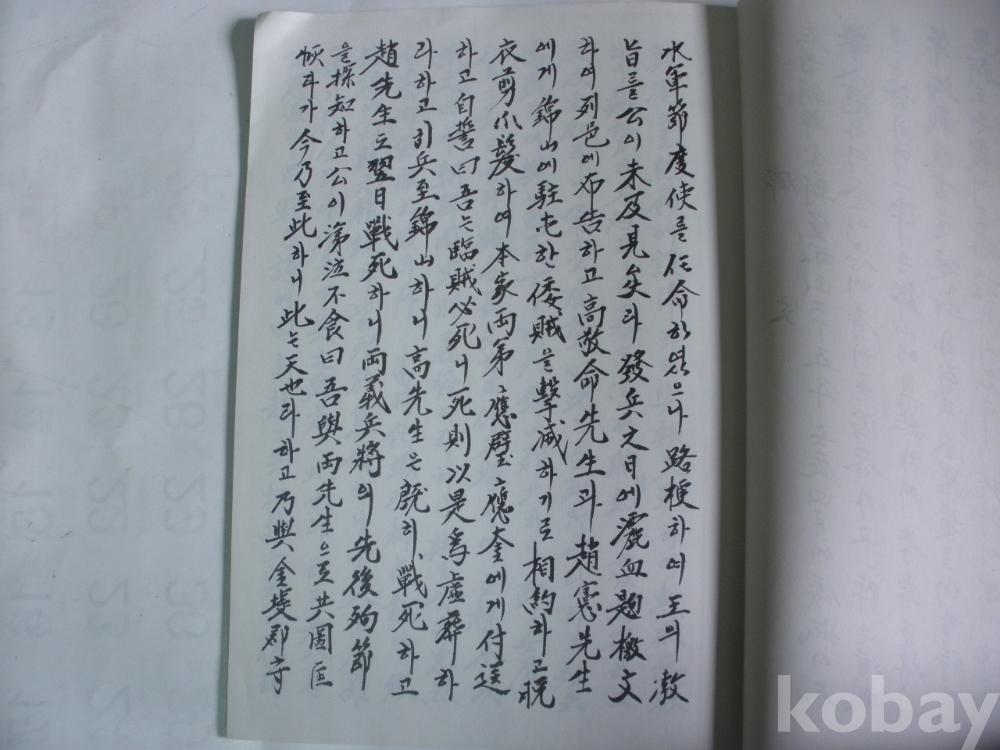 水軍節度使를 任命하였으나 路梗하여 王의 敎
旨를 公이 未及見矣라 發兵之日에 灑血題檄文
하여 列邑에 布告하고 高敬命先生과 趙憲先生
에게 錦山에 駐屯한 倭賊을 擊滅하기로 相約하고 脫
衣剪爪髮하여 本家両弟 應璧 應奎에게 付送
하고 自誓曰 吾는 臨賊必死니 死則以是爲虛葬하
라하고 引兵至錦山하니 高先生은 旣히 戰死하고
趙先生도 翌日戰死하니 両義兵將의 先後殉節
을 探知하고 公이 涕泣不食曰 吾與両先生으로 共圖匡
恢라가 今乃至此하니 此는 天也라하고 乃與金 郡守
kobay